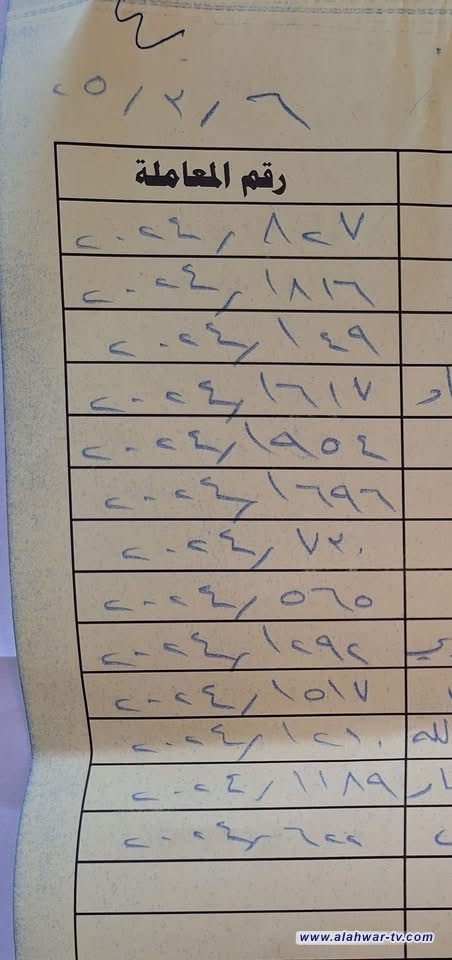 ٢٥/٣/٦
رقم المعاملة
٢٠٢٤/٨٢٧
٢٠٢٤/١٨١٦
٢٠٢٤/١٤٩
٢٠٢٤/١٦١٧
٢٠٢٤/١٩٥٤
٢٠٢٤/١٦٩٦
٢٠٢٤/٧٣٠
٢٠٢٤/٥٦٥
٢٠٢٤/١٢٩٢
٢٠٢٤/١٥١٧
٢٠٢٤/١٢١٠
٢٠٢٤/١١٨٩
٢٠٢٤/٦٢٢
www.alahwar-tv.com